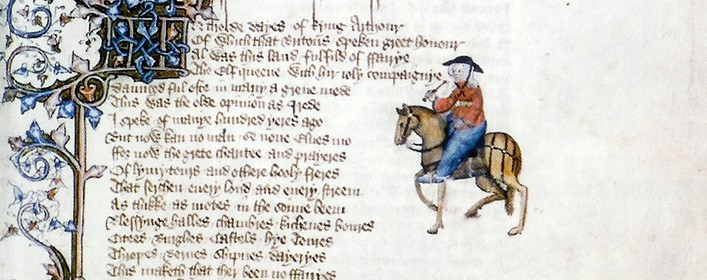 In tholde dayes of kyng Arthour
Of which that Britons speken greet honour
Al was this land fulfild of ffairye
The Elf queene with hir ioly compaignye
Daunced ful ofte in many a grene mede
This was the olde opinion as I rede
I speke of manye hundred yeres ago
But now kan no man se none Elues mo
ffor now the grete charitee and prayeres
Of lymytours and othere hooly freres
That serchen euery lond and euery streem
As thikke as motes in the sonne beem
Blessynge halles chambres kichenes boures
Citees Burghes Castels hye Toures
Thropes Bernes Shipnes dayeryes
This maketh that ther been no ffairyes